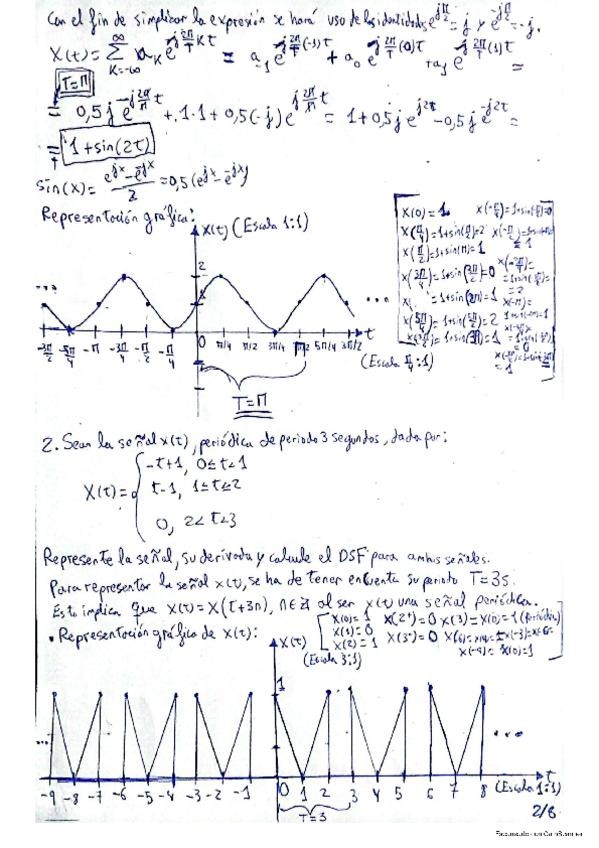 Con el fin de simplificar la expresión se hará uso de las identidades e^{jπ/2}=j y e^{-jπ/2}=-j.
X(t)= ∑_{K=-∞}^{∞} a_K e^{j 2π/T Kt} = a_{-1} e^{j 2π/T (-1)t} + a_0 e^{j 2π/T (0)t} + a_1 e^{j 2π/T (1)t} =
T=π
= 0,5j e^{-j 2π/π t} + 1·1 + 0,5(-j) e^{j 2π/π t} = 1+0,5j e^{j2t} -0,5j e^{-j2t} =
= 1+sin(2t)
sin(x)= (e^{jx}-e^{-jx})/2 =0,5(e^{jx}-e^{-jx})
Representación gráfica:
X(t) (Escala 1:1)
X(0)=1
X(π/4)=1+sin(π/2)=2
X(π/2)=1+sin(π)=1
X(3π/4)=1+sin(3π/2)=0
=1+sin(2π)=1
X(5π/4)=1+sin(5π/2)=2
=1+sin(3π)=1
2
... ...
-3π/2 -5π/4 -π -3π/4 -π/2 -π/4 0 π/4 π/2 3π/4 π 5π/4 3π/2 t
(Escala π/4:1)
T=π
2. Sean la señal x(t), periódica de periodo 3 segundos, dada por:
X(t)= { -t+1, 0≤t<1
t-1, 1≤t≤2
0, 2<t<3
Represente la señal, su derivada y calcule el DSF para ambas señales.
Para representar la señal x(t), se ha de tener en cuenta su periodo T=3s.
Esto implica que x(t)=X(t+3n), n∈Z al ser x(t) una señal periódica.
• Representación gráfica de x(t):
X(t)
(Escala 3:1)
X(0)=1 X(2⁺)=0 X(3)=X(0)=1 (Periódica)
X(1)=0 X(3⁻)=0
X(2)=1 X(-9)=X(0)=1
1
... ...
-9 -8 -7 -6 -5 -4 -3 -2 -1 0 1 2 3 4 5 6 7 8 t
(Escala 1:1)
T=3
2/8
Escaneado con CamScanner